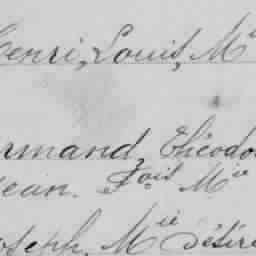 Henri, Louis, Mie
Armand, Théodo
Jean. Fois Mie
Joseph, Mie Désiré